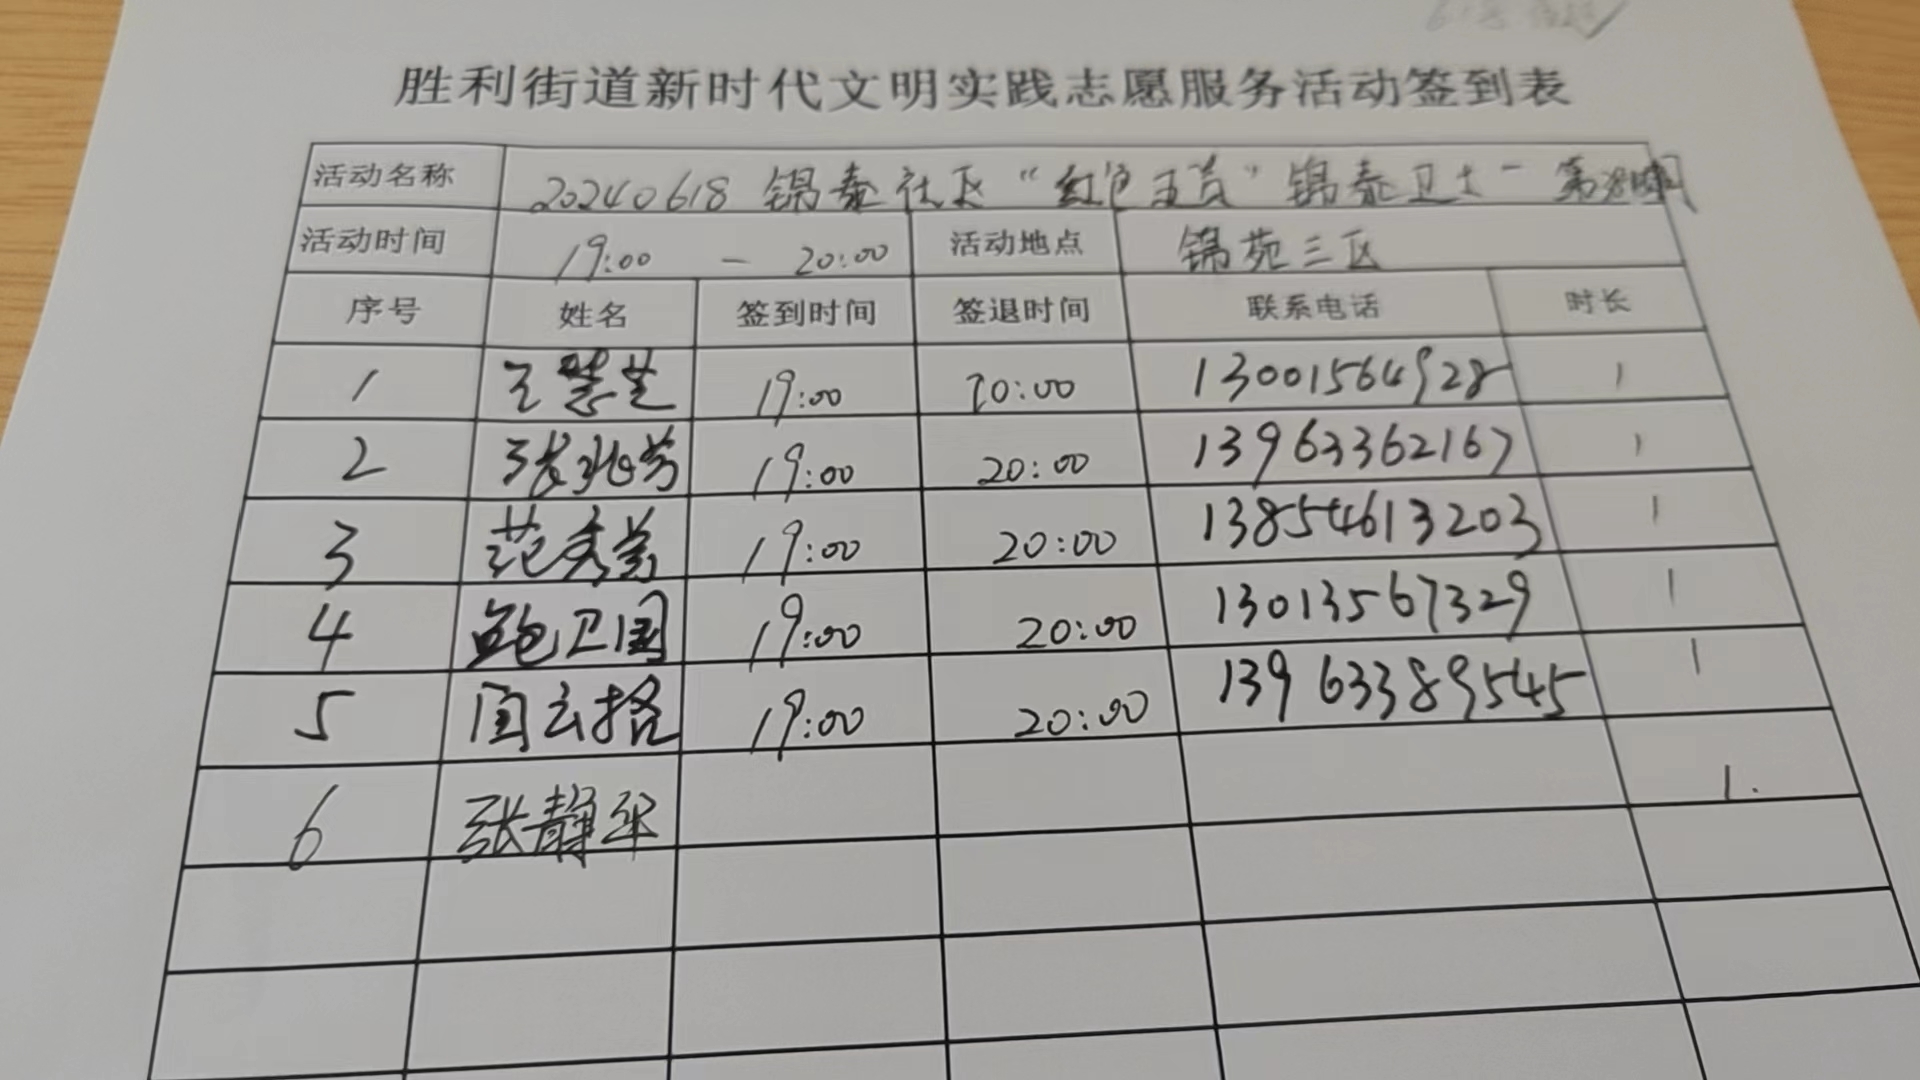 胜利街道新时代文明实践志愿服务活动签到表
活动名称 20240618 锦泰社区“红色五员”锦泰卫士-
活动时间 19:00 - 20:00 活动地点 锦苑三区
序号 姓名 签到时间 签退时间 联系电话 时长
1 王慧芝 19:00 20:00 13001564928 1
2 张兆芳 19:00 20:00 13963362167 1
3 范秀芳 19:00 20:00 13854613203 1
4 鲍卫国 19:00 20:00 13013567329 1
5 闫云格 19:00 20:00 13963389545 1
6 张静 1.